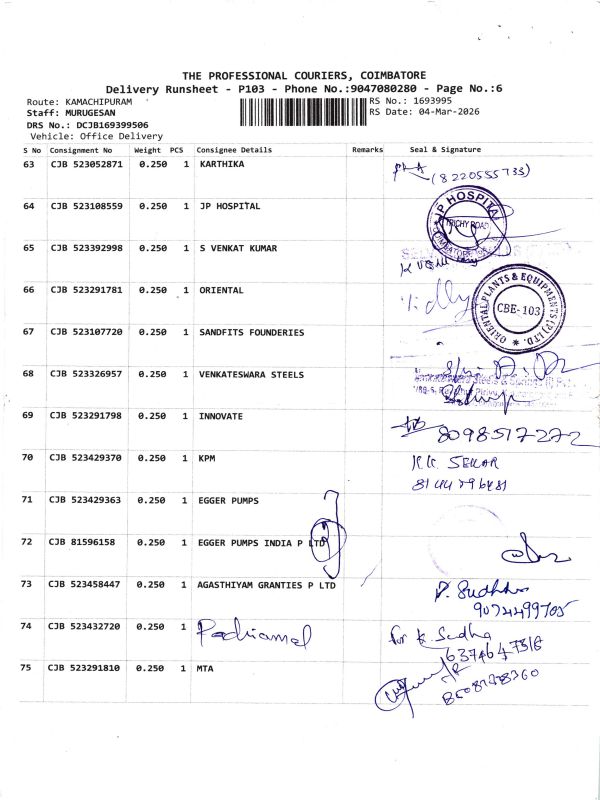 THE PROFESSIONAL COURIERS, COIMBATORE
Delivery Runsheet - P103 - Phone No.:9047080280 - Page No.:6
Route: KAMACHIPURAM
Staff: MURUGESAN
DRS No.: DCJB169399506
Vehicle: Office Delivery
RS No.: 1693995
RS Date: 04-Mar-2026
S No Consignment No Weight PCS Consignee Details Remarks Seal & Signature
63 CJB 523052871 0.250 1 KARTHIKA (8220555733)
64 CJB 523108559 0.250 1 JP HOSPITAL
JP HOSPITAL
TRICHY ROAD
65 CJB 523392998 0.250 1 S VENKAT KUMAR
66 CJB 523291781 0.250 1 ORIENTAL
ORIENTAL PLANTS & EQUIPMENTS (P) LTD.
CBE-103
67 CJB 523107720 0.250 1 SANDFITS FOUNDERIES
68 CJB 523326957 0.250 1 VENKATESWARA STEELS
69 CJB 523291798 0.250 1 INNOVATE 8098517272
70 CJB 523429370 0.250 1 KPM K.K. SEKAR
71 CJB 523429363 0.250 1 EGGER PUMPS
72 CJB 81596158 0.250 1 EGGER PUMPS INDIA P LTD
73 CJB 523458447 0.250 1 AGASTHIYAM GRANTIES P LTD
74 CJB 523432720 0.250 1 for K. Sudha
6374647318
75 CJB 523291810 0.250 1 MTA